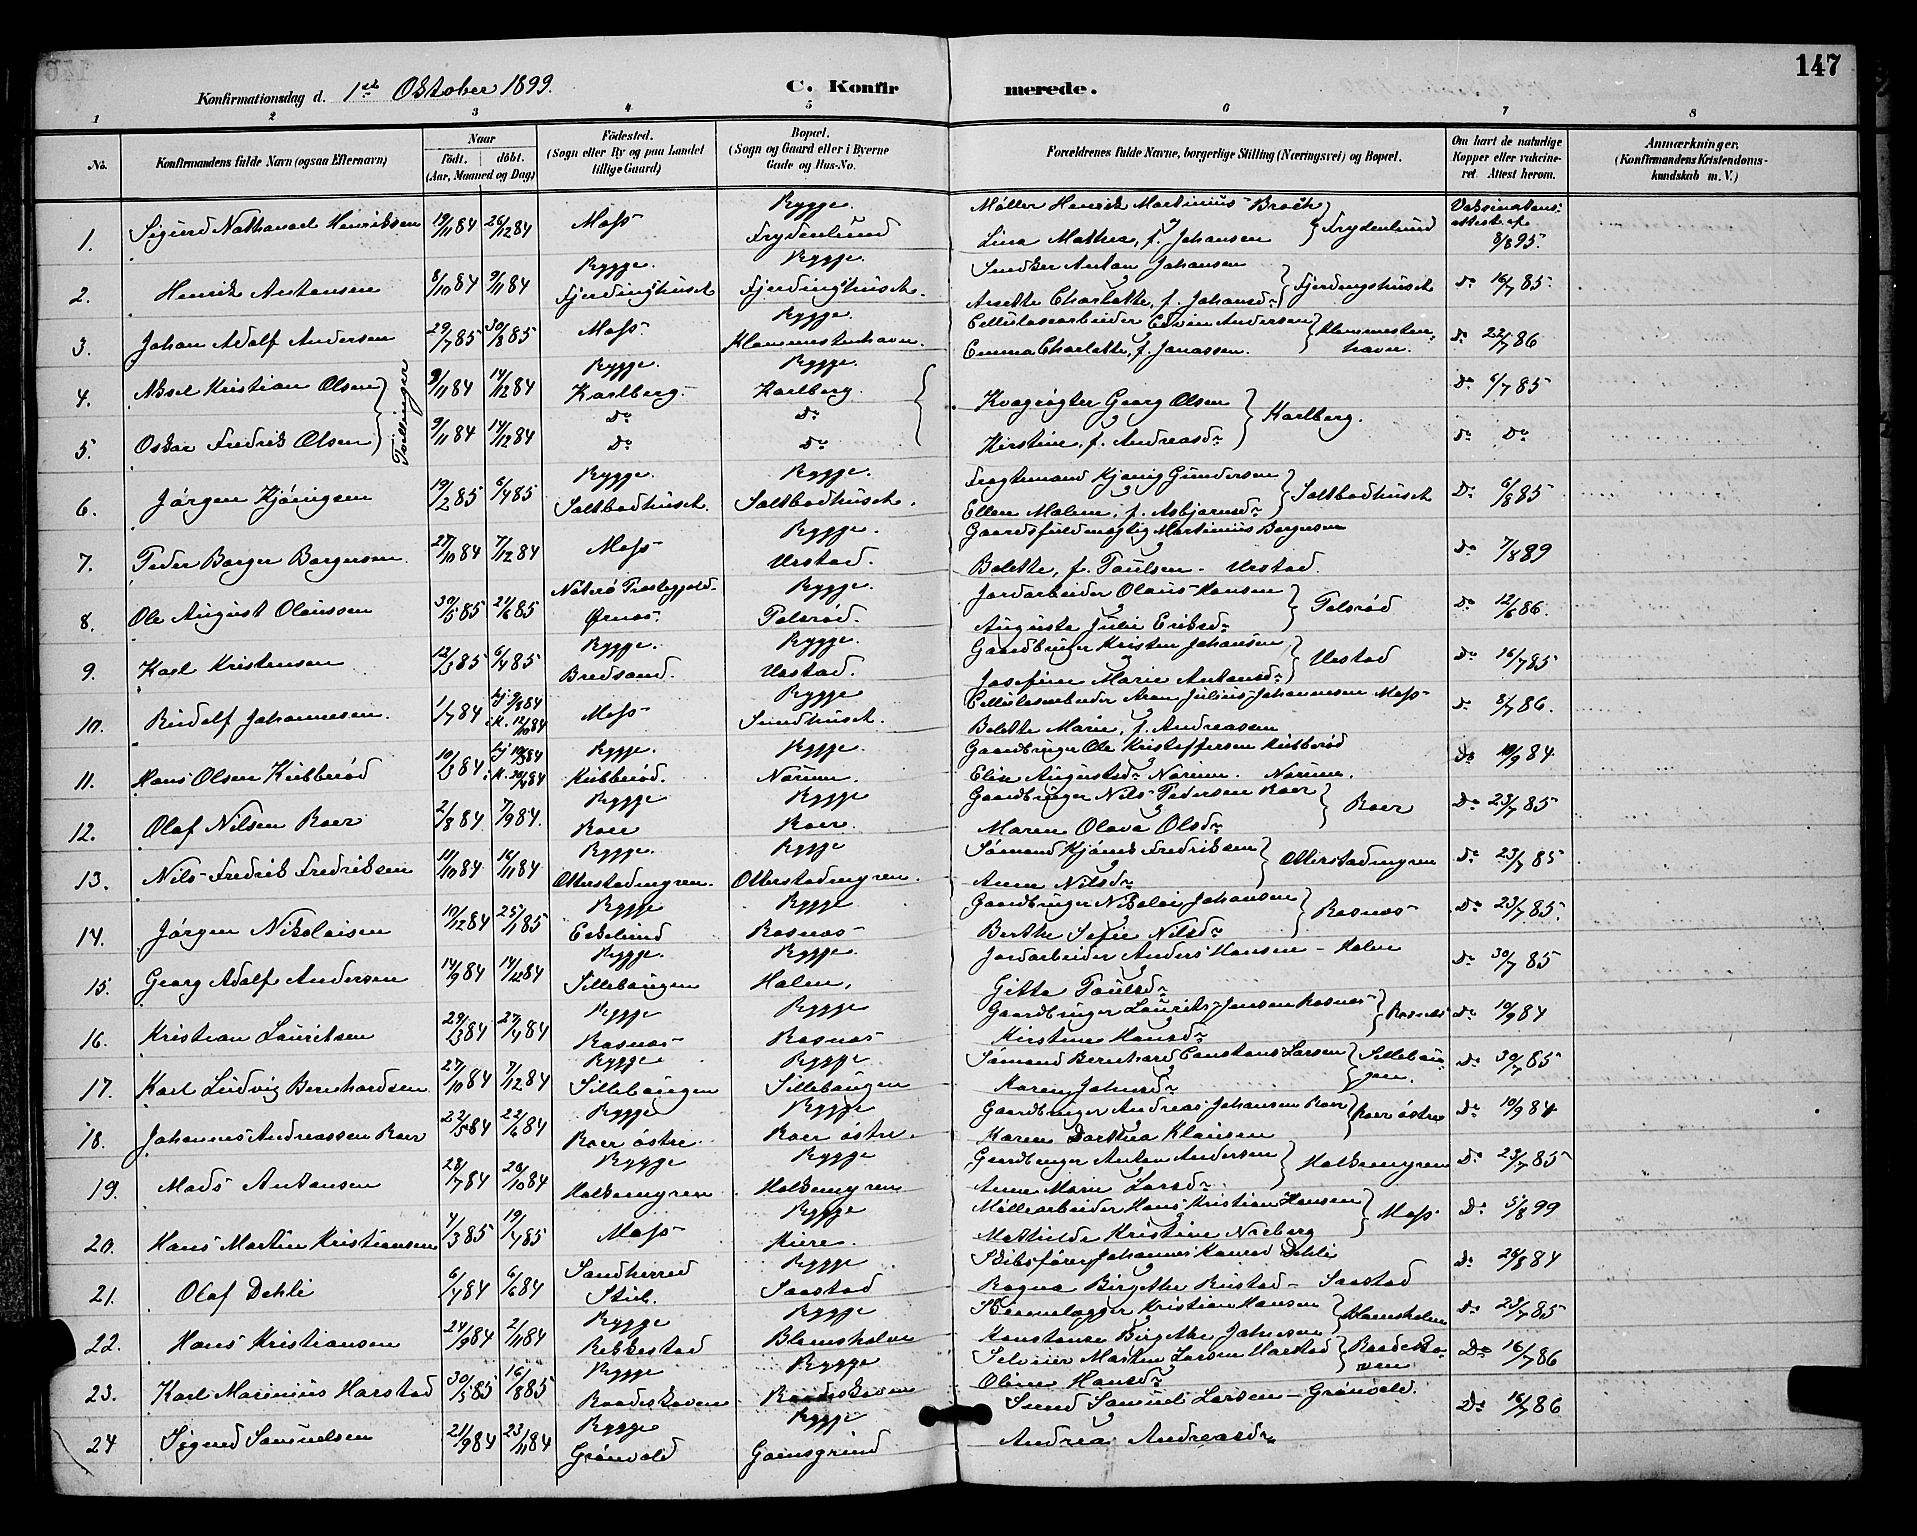 147
Konfirmationsdag d. 1ste Oktober 1899.
C. Konfirmerede.
1 2 3 4 5 6 7 8
No.
Konfirmandens fulde Navn (ogsaa Efternavn)
Naar
födt. döbt.
(Aar, Maaned og Dag)
Födested.
(Sogn eller By og paa Landet
tillige Gaard)
Bopæl.
(Sogn og Gaard eller i Byerne
Gade og Hus-No.
Forældrenes fulde Navne, borgerlige Stilling (Næringsvei) og Bopæl.
Om havt de naturlige
Kopper eller vakcine-
ret. Attest herom.
Anmærkninger.
(Konfirmandens Kristendoms-
kundskab m. V.)
1. Sigurd Nathanael Henriksen 19/11 84 26/12 84 Moss Rygge. Frydenlund Møller Henrik Martinius Braek Lina Mathea, f. Johansen } Frydenlund Vaksinations-attest af 8/8 95.
2. Henrik Antonsen 8/10 84 9/11 84 Rygge. Fjerdinghuset Rygge. Fjerdinghuset. Snedker Anton Johansen Anette Charlotte, f. Johansdr } Fjerdingshuset do 16/7 85.
3. Johan Adolf Andersen 29/7 85 30/8 85 Moss Rygge. Klommestenhavn. Cellulosearbeider Edvin Andersen Emma Charlotte, f. Jonassen. } Klommestenhavn. do 22/7 86
4. Aksel Kristian Olsen 9/11 84 14/12 84 Rygge. Karlberg. Rygge. Karlberg. Kvægrøgter Georg Olsen Kirstine, f. Andreasdr } Karlberg. Do 6/7 85
5. Oskar Fredrik Olsen } Tvillinger 9/11 84 14/12 84 Do Do Do Do do Do
6. Jørgen Kjønigsen 19/2 85 6/4 85 Rygge. Saltbodhuset. Rygge. Saltbodhuset. Fragtemand Kjønig Gundersen Ellen Malene, f. Asbjørnsdr } Saltbodhuset Do 6/8 85
7. Peder Borger Borgersen 27/10 84 7/12 84 Moss Rygge. Urstad. Gaardsfuldmægtig Martinius Borgersen Bolette, f. Paulsen - Urstad. do 7/8 89
8. Ole August Olaussen 30/5 85 21/6 85 Nøterø Præstegjeld. Ørnæs. Rygge. Palsrød. Jordarbeider Olaus Hansen Auguste Julie Eriksdr } Palsrød Do 12/6 86.
9. Karl Kristensen 12/3 85 6/4 85 Rygge. Bredsand. Rygge. Urstad. Gaardbruger Kristen Johansen Josefine Marie Antonsdr } Urstad Do 16/7 85
10. Rudolf Johannesen. 1/7 84 hj 9/8 84 k. 12/10 84 Moss Rygge Sundhuset. Cellulosearbeider Aron Julius Johannesen Moss Bolette Marie, f. Andreasen do 8/7 86.
11. Hans Olsen Kubberød 10/3 84 hj 10/3 84 k. 20/4 84 Rygge. Kubberød. Rygge. Norum. Gaardbruger Ole Kristoffersen Kubberød Elise Augustadr Norum. Norum. Do 10/9 84
12. Olaf Nilsen Roer 2/8 84 7/9 84. Rygge Roer Rygge Roer. Gaardbruger Nils Pedersen Roer Maren Olava Olsdr } Roer Do 23/7 85
13. Nils Fredrik Fredriksen 11/10 84 16/11 84 Rygge. Otterstadmyren. Rygge Otterstadmyren. Sømand Kjønik Fredriksen Anne Nilsdr } Otterstadmyren do 23/7 85
14. Jørgen Nikolaisen 17/12 84 25/1 85 Rygge Eckelund Rygge. Rosnæs Gaardbruger Nikolai Johansen Berthe Sofie Nilsdr } Rosnæs Do 23/7 85.
15. Georg Adolf Andersen 14/9 84 14/12 84 Rygge. Sillebaugen Rygge. Holen. Jordarbeider Anders Hansen - Holen Gitta Paulsdr Do 30/7 85
16. Kristian Lauritsen 29/3 84 27/4 84 Rygge Rosnæs Rygge Rosnæs Gaardbruger Laurits Jensen Rosnæs Kirstine Hansdr } Rosnæs Do 10/9 84
17. Karl Ludvig Bernhardsen 27/10 84 7/12 84 Rygge Sillebaugen Rygge Sillebaugen Sømand Bernhard Constans Larsen Karen Johnsdr } Sillebaugen. Do 30/7 85
18. Johannes Andreassen Roer 22/5 84 22/6 84 Rygge Roer østre. Rygge Roer østre. Gaardbruger Andreas Johansen Roer Karen Dorthea Klausen } Roer østre Do 10/9 84
19. Mads Antonsen 28/7 84 26/10 84 Rygge Halkemyren Rygge Halkemyren Gaardbruger Anton Andersen Anne Marie Larsdr } Halkemyren Do 23/7 85
20. Hans Martin Kristiansen 4/3 85 19/4 85 Moss Rygge Kiere. Møllearbeider Hans Kristian Hansen Mathilde Kristine Norberg } Moss Do 5/8 99
21. Olaf Dehli 6/4 84 6/6 84 Sandherred Stub. Rygge Saastad Skibsfører Johannes Konrad Dehli Ragna Birgithe Rustad - Saastad Do 26/8 84
22. Hans Kristiansen 24/9 84 2/11 84 Rygge Rekkestad Rygge Blomsholm Kristian Hansen Konstanse Birgithe Johnsen } Blomsholm do 23/7 85
23. Karl Marinius Harstad 30/5 85 16/8 85 Rygge Raadeskoven Rygge Raadeskoven Selveier Morten Larsen Harstad Oline Hansdr } Raadeskoven Do 16/7 86
24 Sigurd Samuelsen 21/9 84 23/11 84 Rygge Grønvold Rygge Gamsgrind Smed Samuel Larsen - Grønvold. Andrea Andreasdr Do 16/7 86